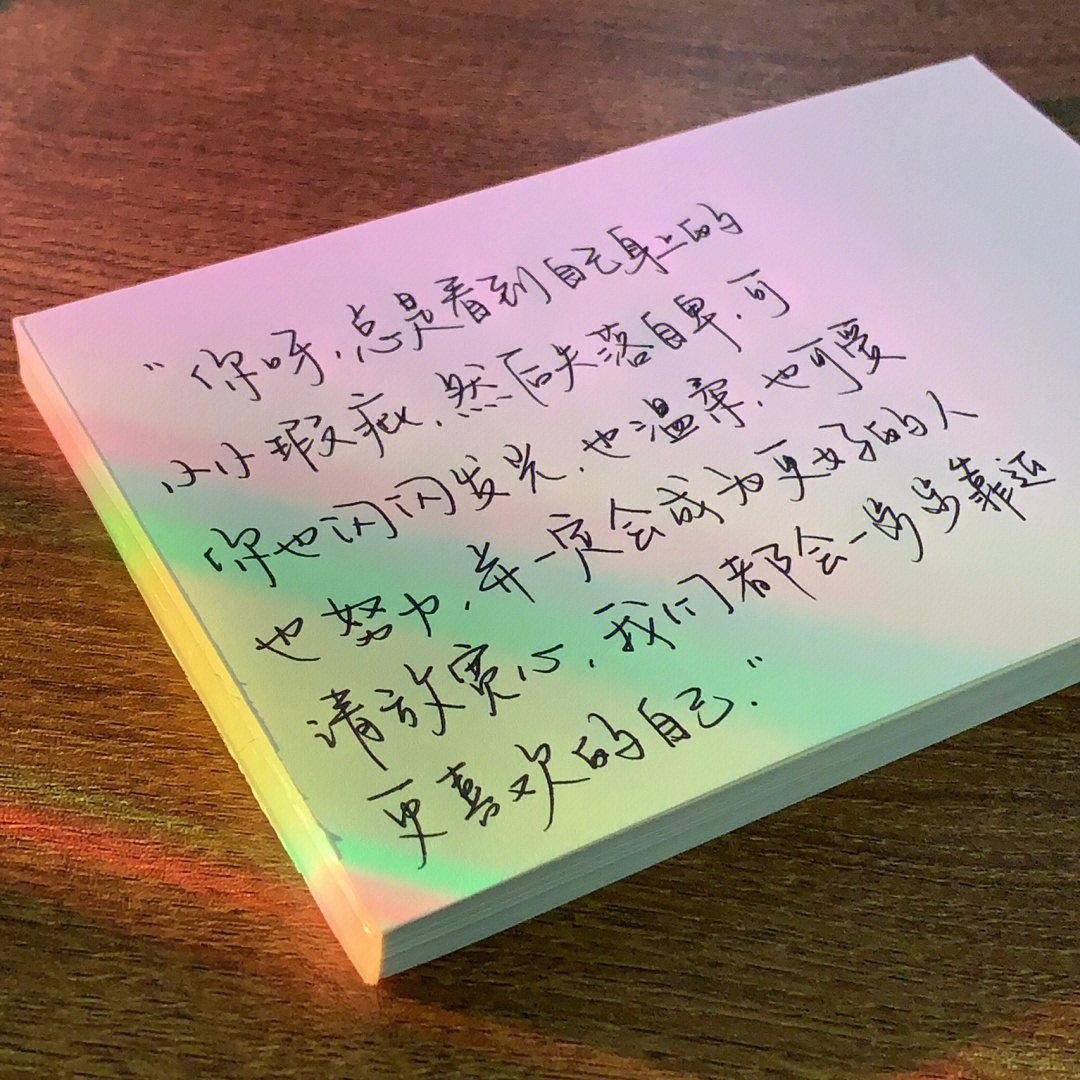 “你呀,总是看到自己身上的
小小瑕疵,然后失落自卑,可
你也闪闪发光,也温柔,也可爱
也努力,并一定会成为更好的人
请放宽心,我们都会一步步靠近
更喜欢的自己.”